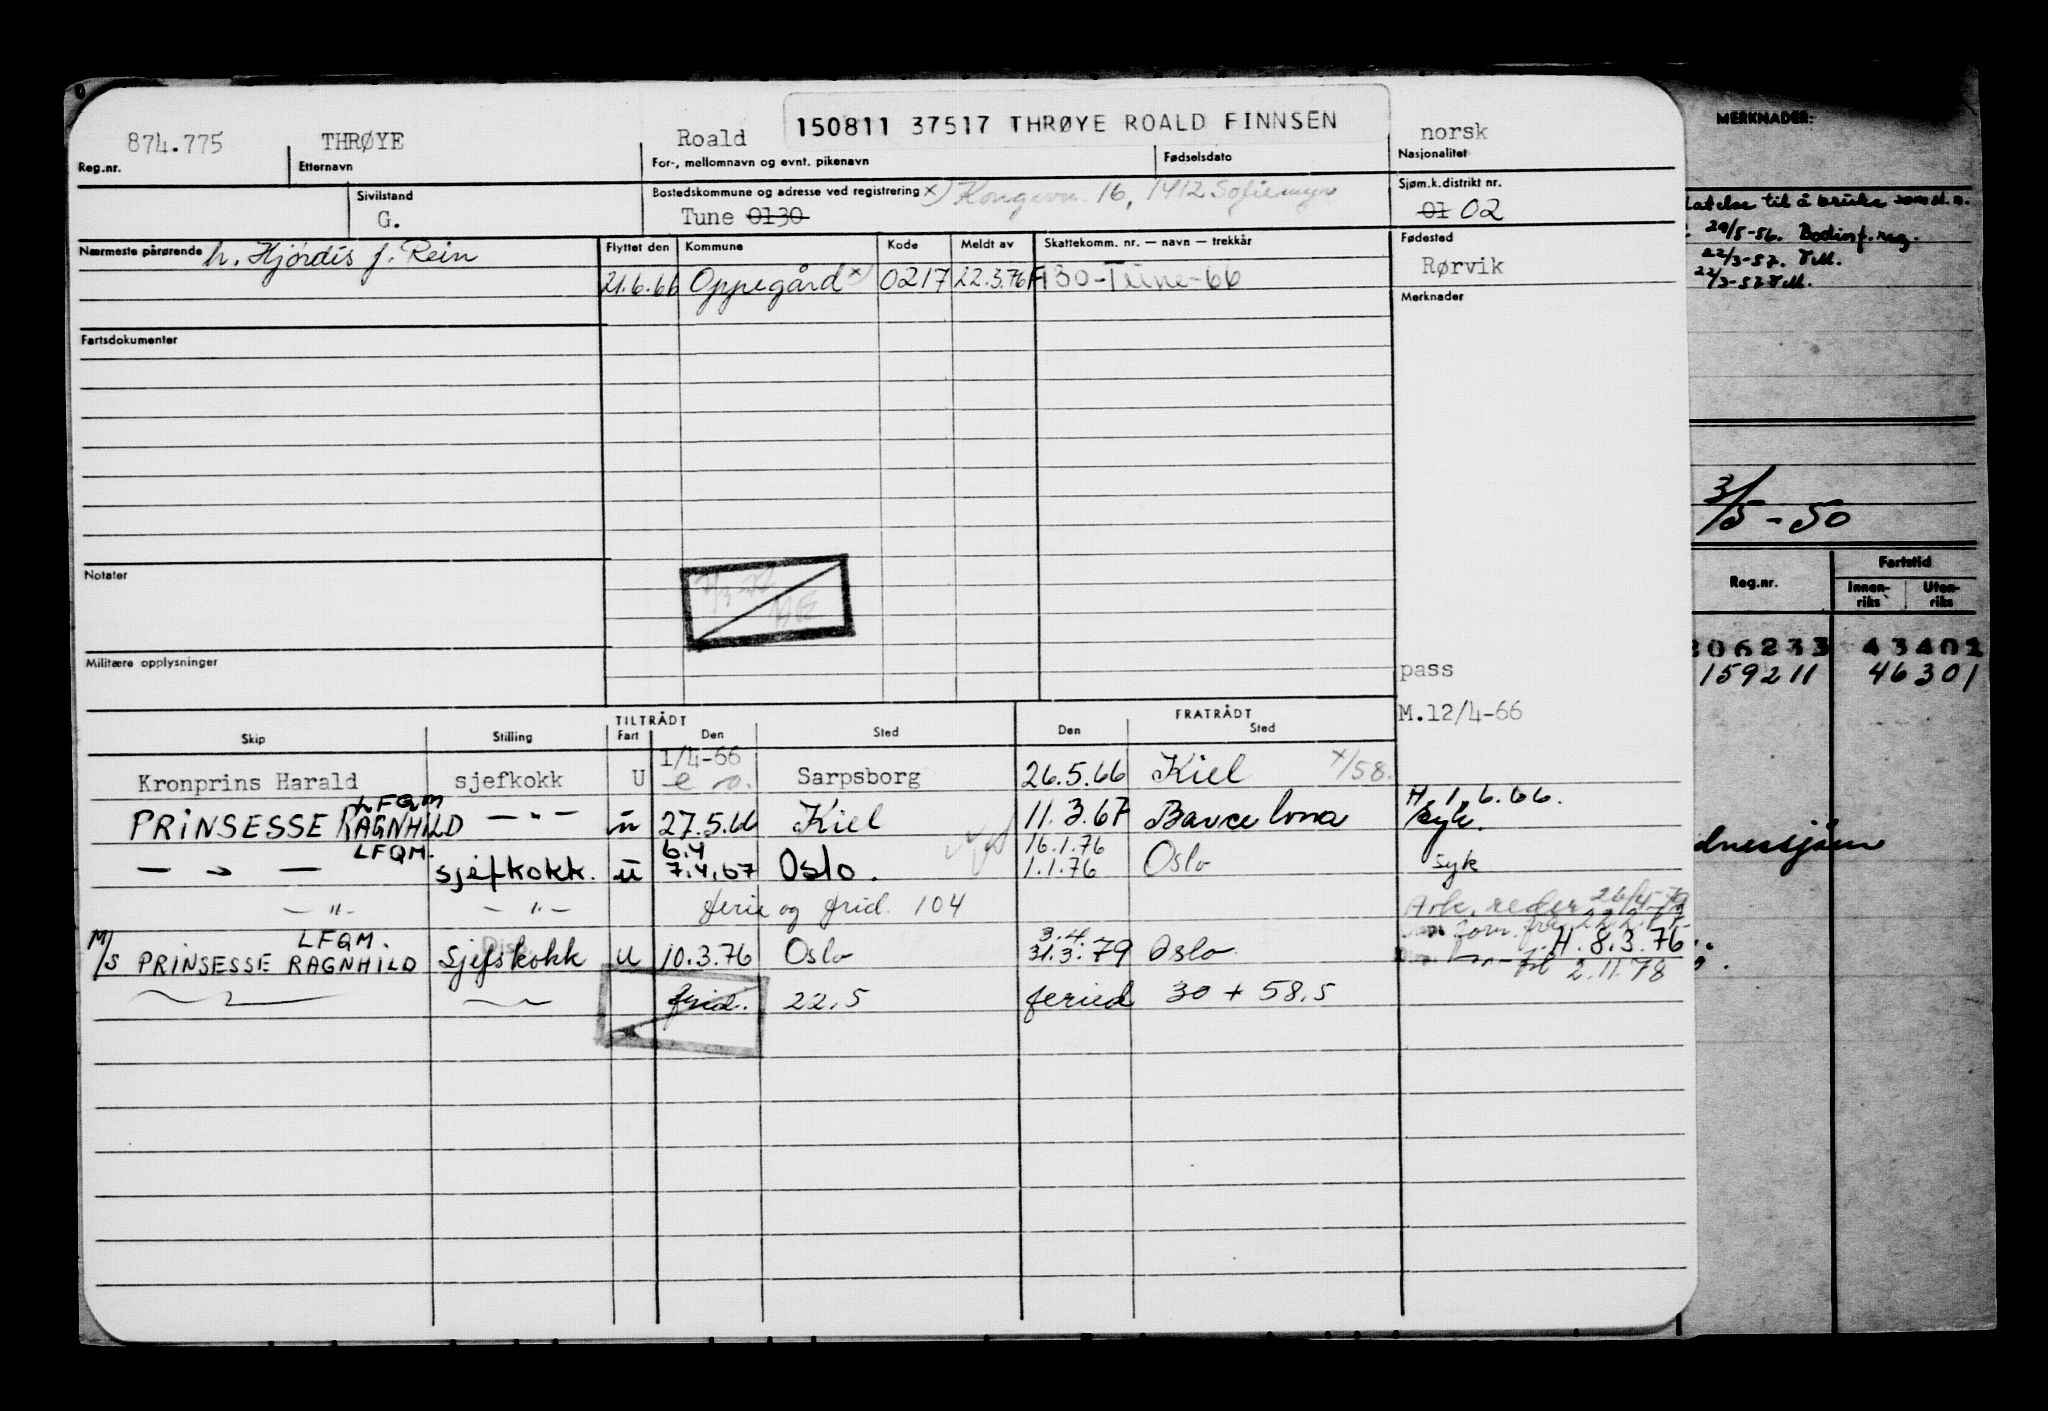 150811 37517 THRØYE ROALD FINNSEN
874.775 THRØYE Roald norsk
Reg.nr. Etternavn For-, mellomnavn og evnt. pikenavn Fødselsdato Nasjonalitet
Sivilstand Bostedskommune og adresse ved registrering x) Kongevn. 16, 1412 Sofiemyr Sjøm.k.distrikt nr.
G. Tune 0130 01 02
Nærmeste pårørende h. Hjördis f. Rein Flyttet den Kommune Kode Meldt av Skattekomm. nr. — navn — trekkår Fødested
21.6.66 Oppegård x) 0217 22.3.76 130-Tune-66 Rørvik
Merknader
Fartsdokumenter
Notater
Militære opplysninger
pass
M.12/4-66
TILTRÅDT FRATRÅDT
Skip Stilling Fart Den Sted Den Sted
1/4-66
Kronprins Harald sjefkokk U Sarpsborg 26.5.66 Kiel x/58.
LFQM H. 1.6.66.
PRINSESSE RAGNHILD — " — u 27.5.66 Kiel 11.3.67 Barcelona syk.
LFQM. 6.4 16.1.76
— " — sjefkokk. u 7.4.67 Oslo. 1.1.76 Oslo syk
— " — — " — ferie og frid. 104
LFQM. 3.4. H. 8.3.76
M/S PRINSESSE RAGNHILD Sjefskokk u 10.3.76 Oslo 31.3.79 Oslo
2.11.78
frid. 22.5 feried 30 + 58.5
MERKNADER:
til å bruke
20/5-56. Bodinf.reg.
22/3-57. TM.
22/3-57 TM.
3/5-50
Reg.nr. Fartstid
Innen-riks Uten-riks
206233 43401
159211 46301